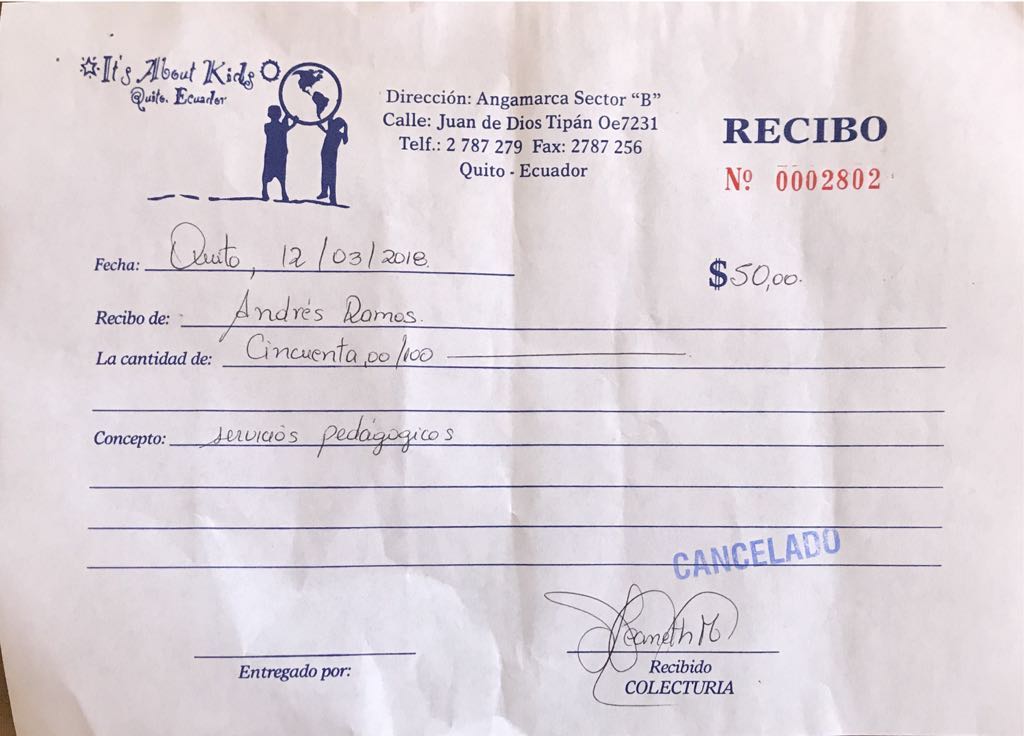 It's About Kids
Quito, Ecuador
Dirección: Angamarca Sector “B”
Calle: Juan de Dios Tipán Oe7231
Telf.: 2 787 279 Fax: 2787 256
Quito - Ecuador
RECIBO
Nº 0002802
Fecha: Quito, 12/03/2018.
$50,00.
Recibo de: Andrés Ramos.
La cantidad de: Cincuenta,00/100
Concepto: servicios pedagógicos
CANCELADO
Jeaneth M
Entregado por:
Recibido
COLECTURIA